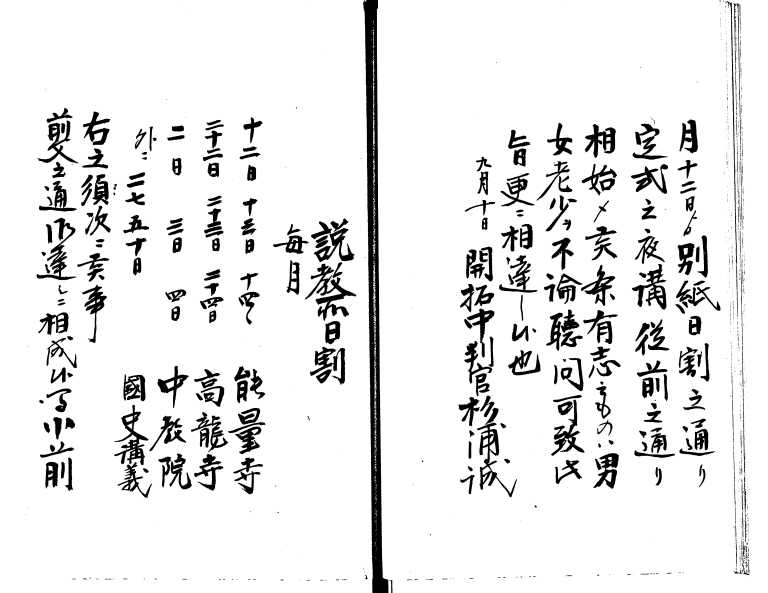 月十二日ゟ別紙日割之通り
定式之夜講従前之通り
相始〆候条有志ものハ男
女老少ヲ不論聴問可致此
旨更ニ相達し候也
九月十日 開拓中判官杉浦誠
説教所日割
毎月
十二日 十三日 十四日 能量寺
二十二日 二十三日 二十四日 高龍寺
二日 三日 四日 中教院
外ニ 二七五十日 國史講義
右之須次ニ候事
前文之通御達ニ相成候間小前